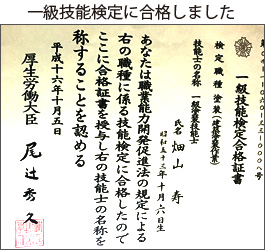 一級技能検定に合格しました
一級技能検定合格証書
検定職種 塗装（建築塗装作業）
技能士の名称 一級塗装技能士
氏名 畑山 寿
昭和五十三年十月六日生
あなたは職業能力開発促進法の規定による
右の職種に係る技能検定に合格したので
ここに合格証書を授与し右の技能士の名称を
称することを認める
平成十六年十月五日
厚生労働大臣 尾辻秀久